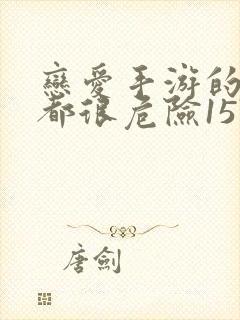 戀愛手游的
都很危險15
唐劍